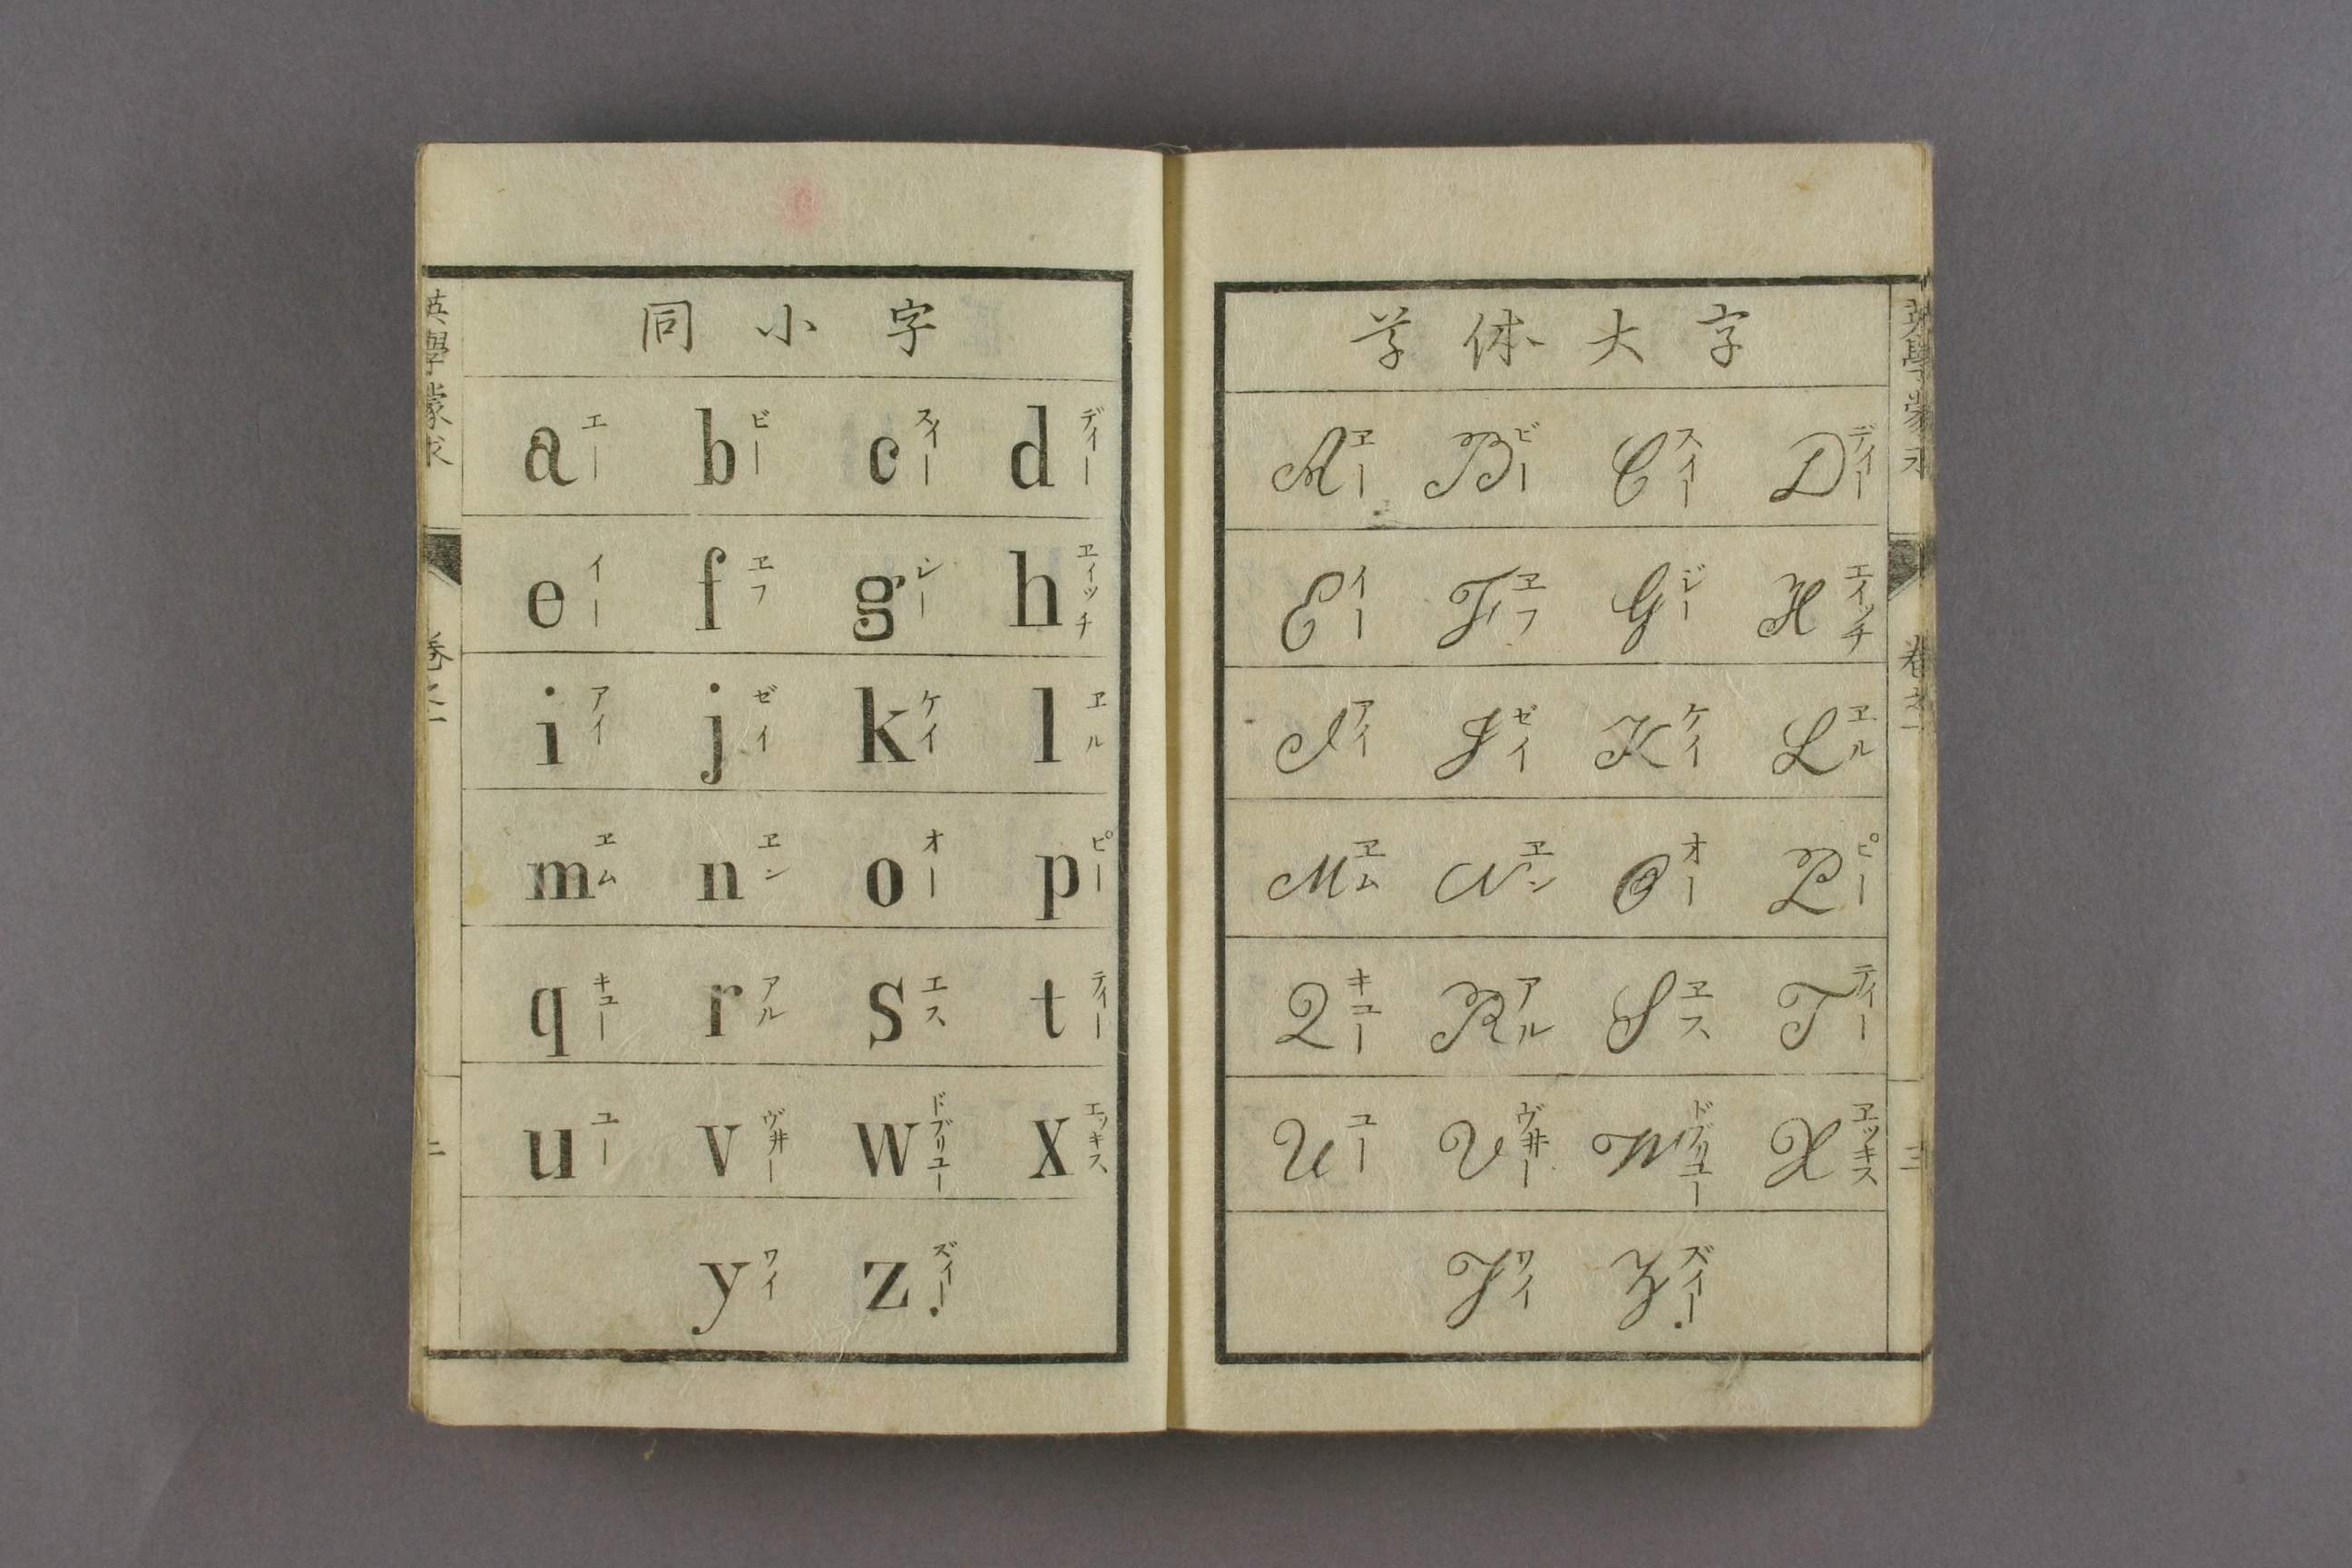 英學蒙求
卷之一
二
同小字
a エー b ビー c スイー d デイー
e イー f ヱフ g シー h ヱイッチ
i アイ j ゼイ k ケイ l ヱル
m ヱム n ヱン o オー p ピー
q キユー r アル s エス t テイー
u ユー v ヴ井ー w ドブリユー x エッキス
y ワイ z ズイー.
草体大字
A ヱー B ビー C スイー D デイー
E イー F ヱフ G ジー H エイッチ
I アイ J ゼイ K ケイ L ヱル
M ヱム N ヱン O オー P ピー
Q キユー R アル S ヱス T テイー
U ユー V ヴ井ー W ドブリユー X ヱッキス
Y ワイ Z ズイー.
英學蒙求
卷之一
三